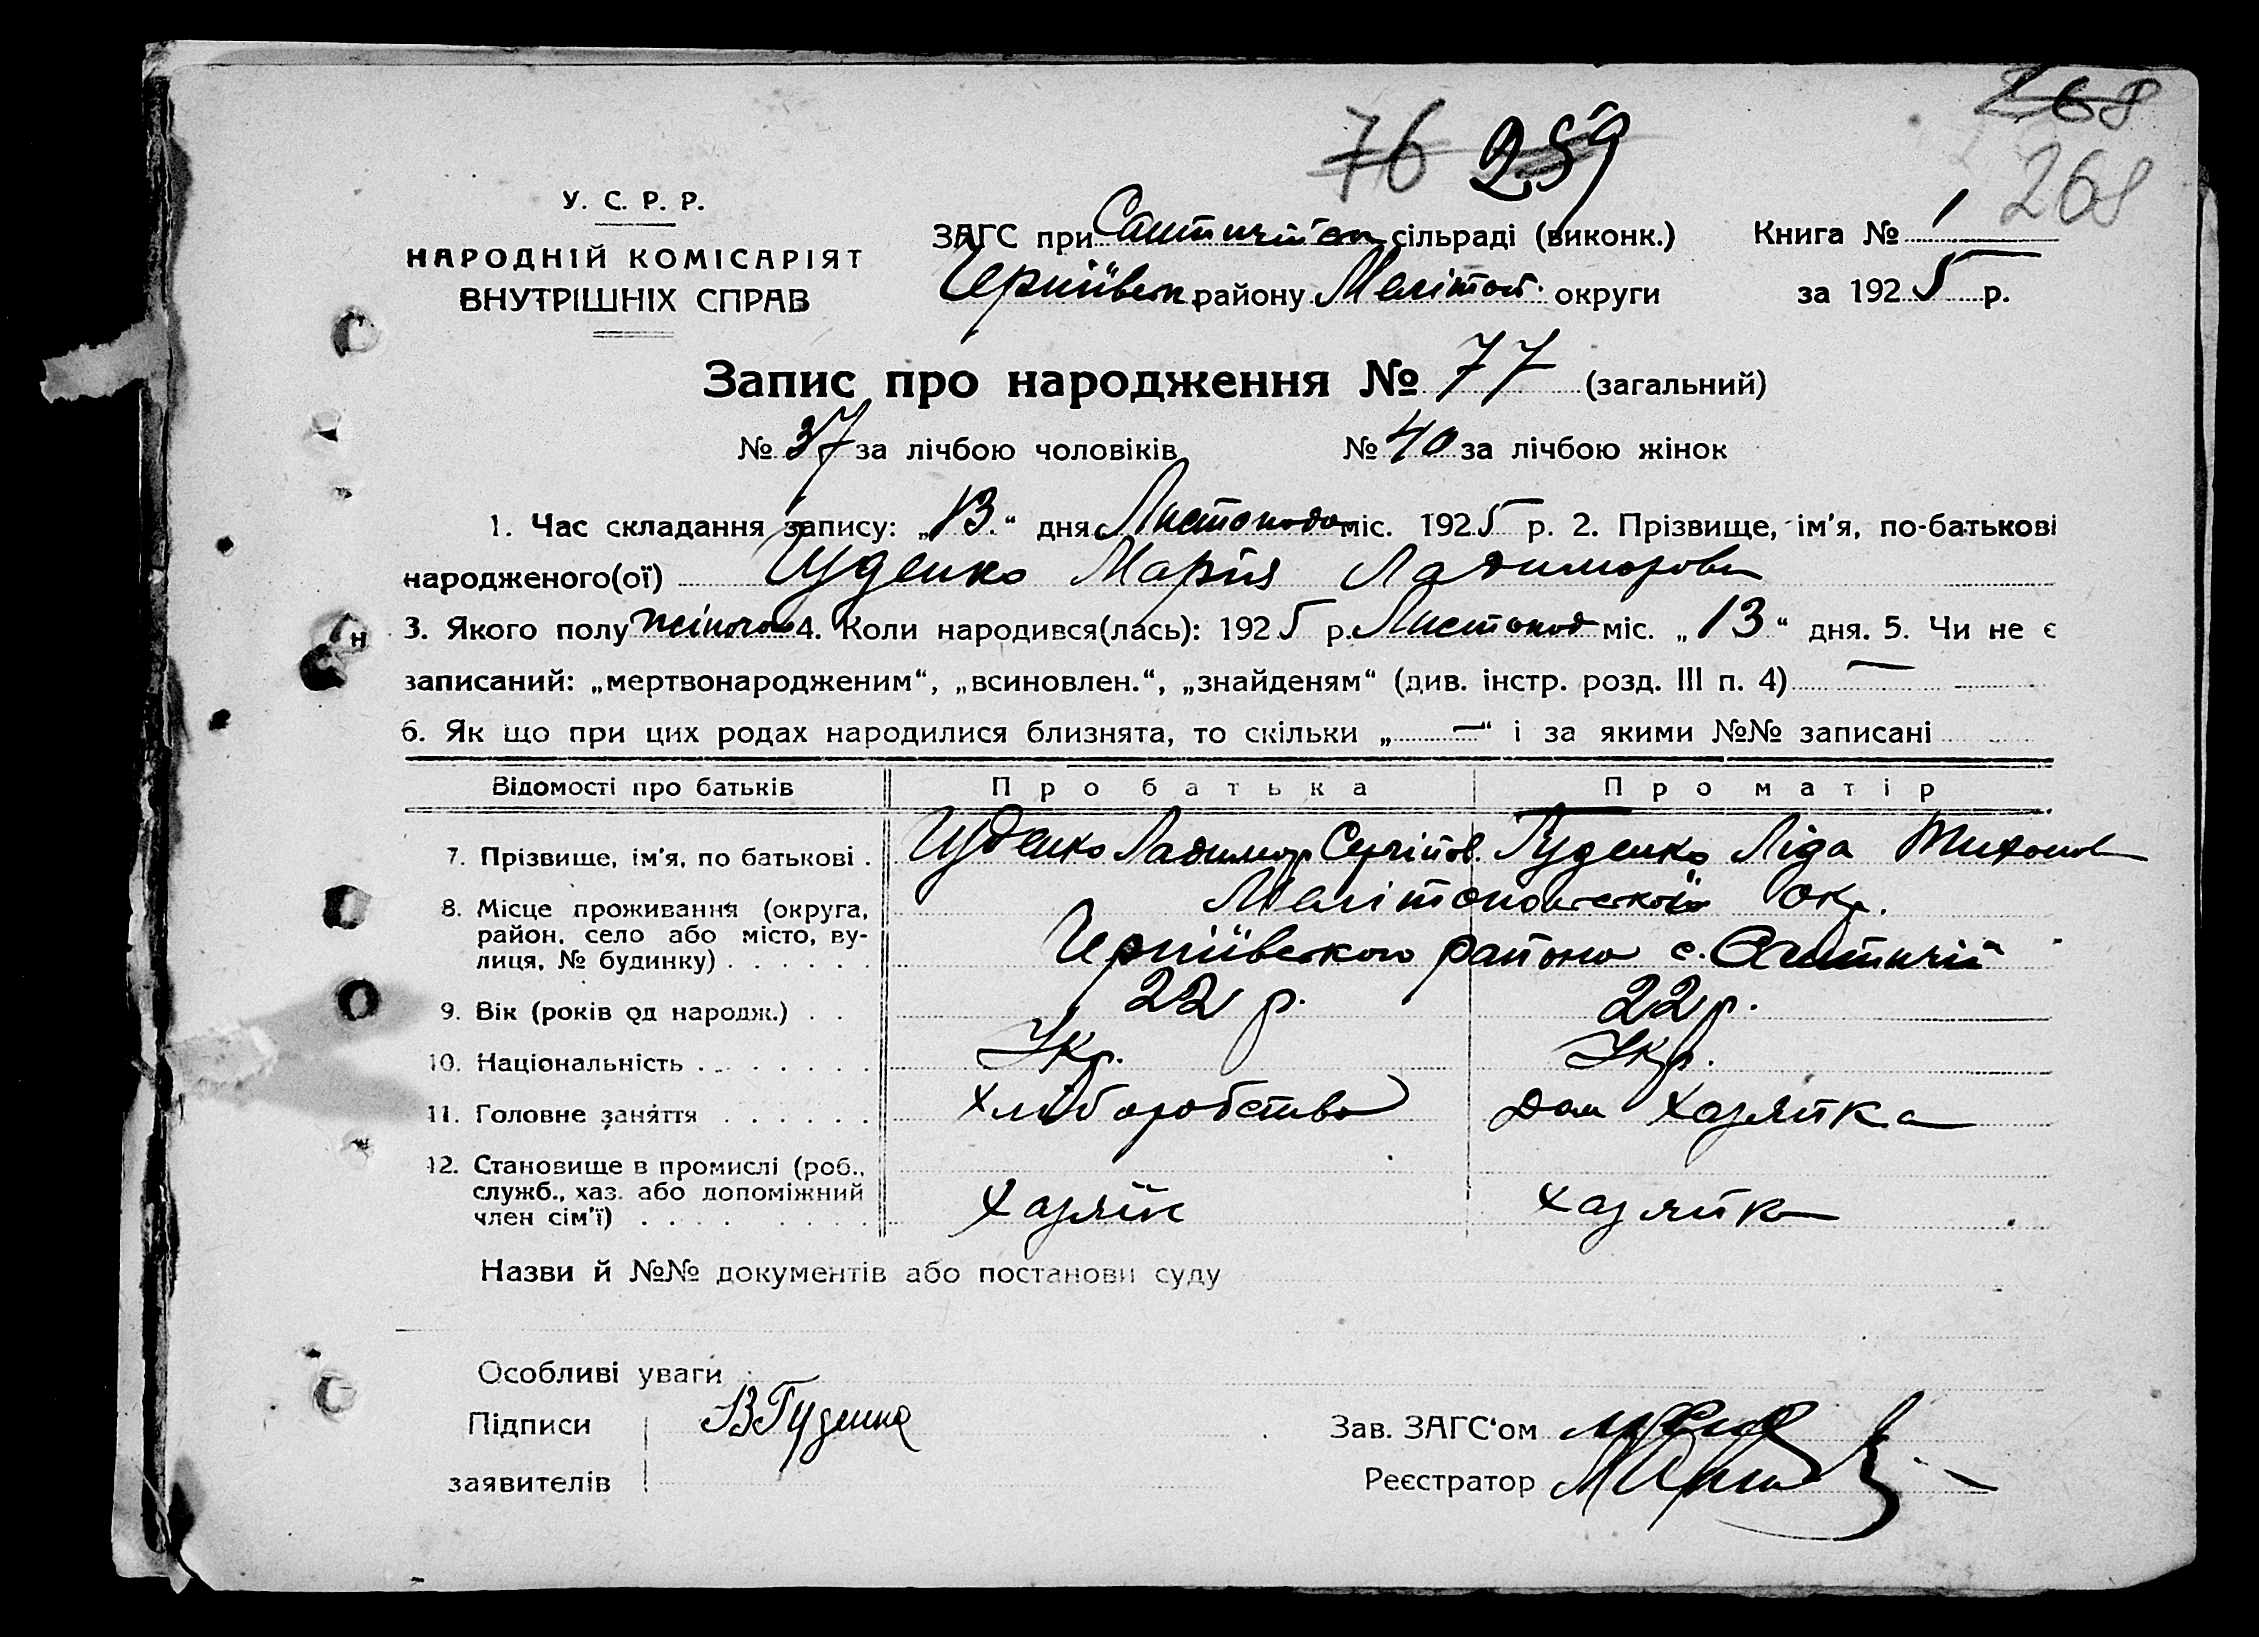 268
76 259
268
У. С. Р. Р.
НАРОДНІЙ КОМІСАРІЯТ
ВНУТРІШНІХ СПРАВ
ЗАГС при сільраді (виконк.)
району Мелітоп. округи
Книга № 1
за 1925 р.
Запис про народження № 77 (загальний)
№ 37 за лічбою чоловіків № 40 за лічбою жінок
1. Час складання запису: „13“ дня Листопода міс. 1925 р. 2. Прізвище, ім'я, по-батькові
народженого(ої) Гуденко Марія
3. Якого полу жіночого 4. Коли народився(лась): 1925 р. Листопод міс. „13“ дня. 5. Чи не є
записаний: „мертвонародженим“, „всиновлен.“, „знайденям“ (див. інстр. розд. III п. 4) —
6. Як що при цих родах народилися близнята, то скільки „—“ і за якими №№ записані
Відомості про батьків Про батька Про матір
7. Прізвище, ім'я, по батькові . Гуденко Ладимор Сергійов. Гуденко Ліда Тихонов
8. Місце проживання (округа,
район, село або місто, ву-
лиця, № будинку) . . . . . .
Мелітопольської окр.
району с.
9. Вік (років од народж.) . . 22 р. 22 р.
10. Національність . . . . . . . Укр. Укр.
11. Головне заняття . . . . . . Хліборобство Дом Хазяйка
12. Становище в промислі (роб.,
служб., хаз. або допоміжний
член сім'ї) . . . . . . . .
Хазяїн Хазяйка
Назви й №№ документів або постанови суду
Особливі уваги
Підписи
заявителів
В Гуденко
Зав. ЗАГС'ом
Реєстратор